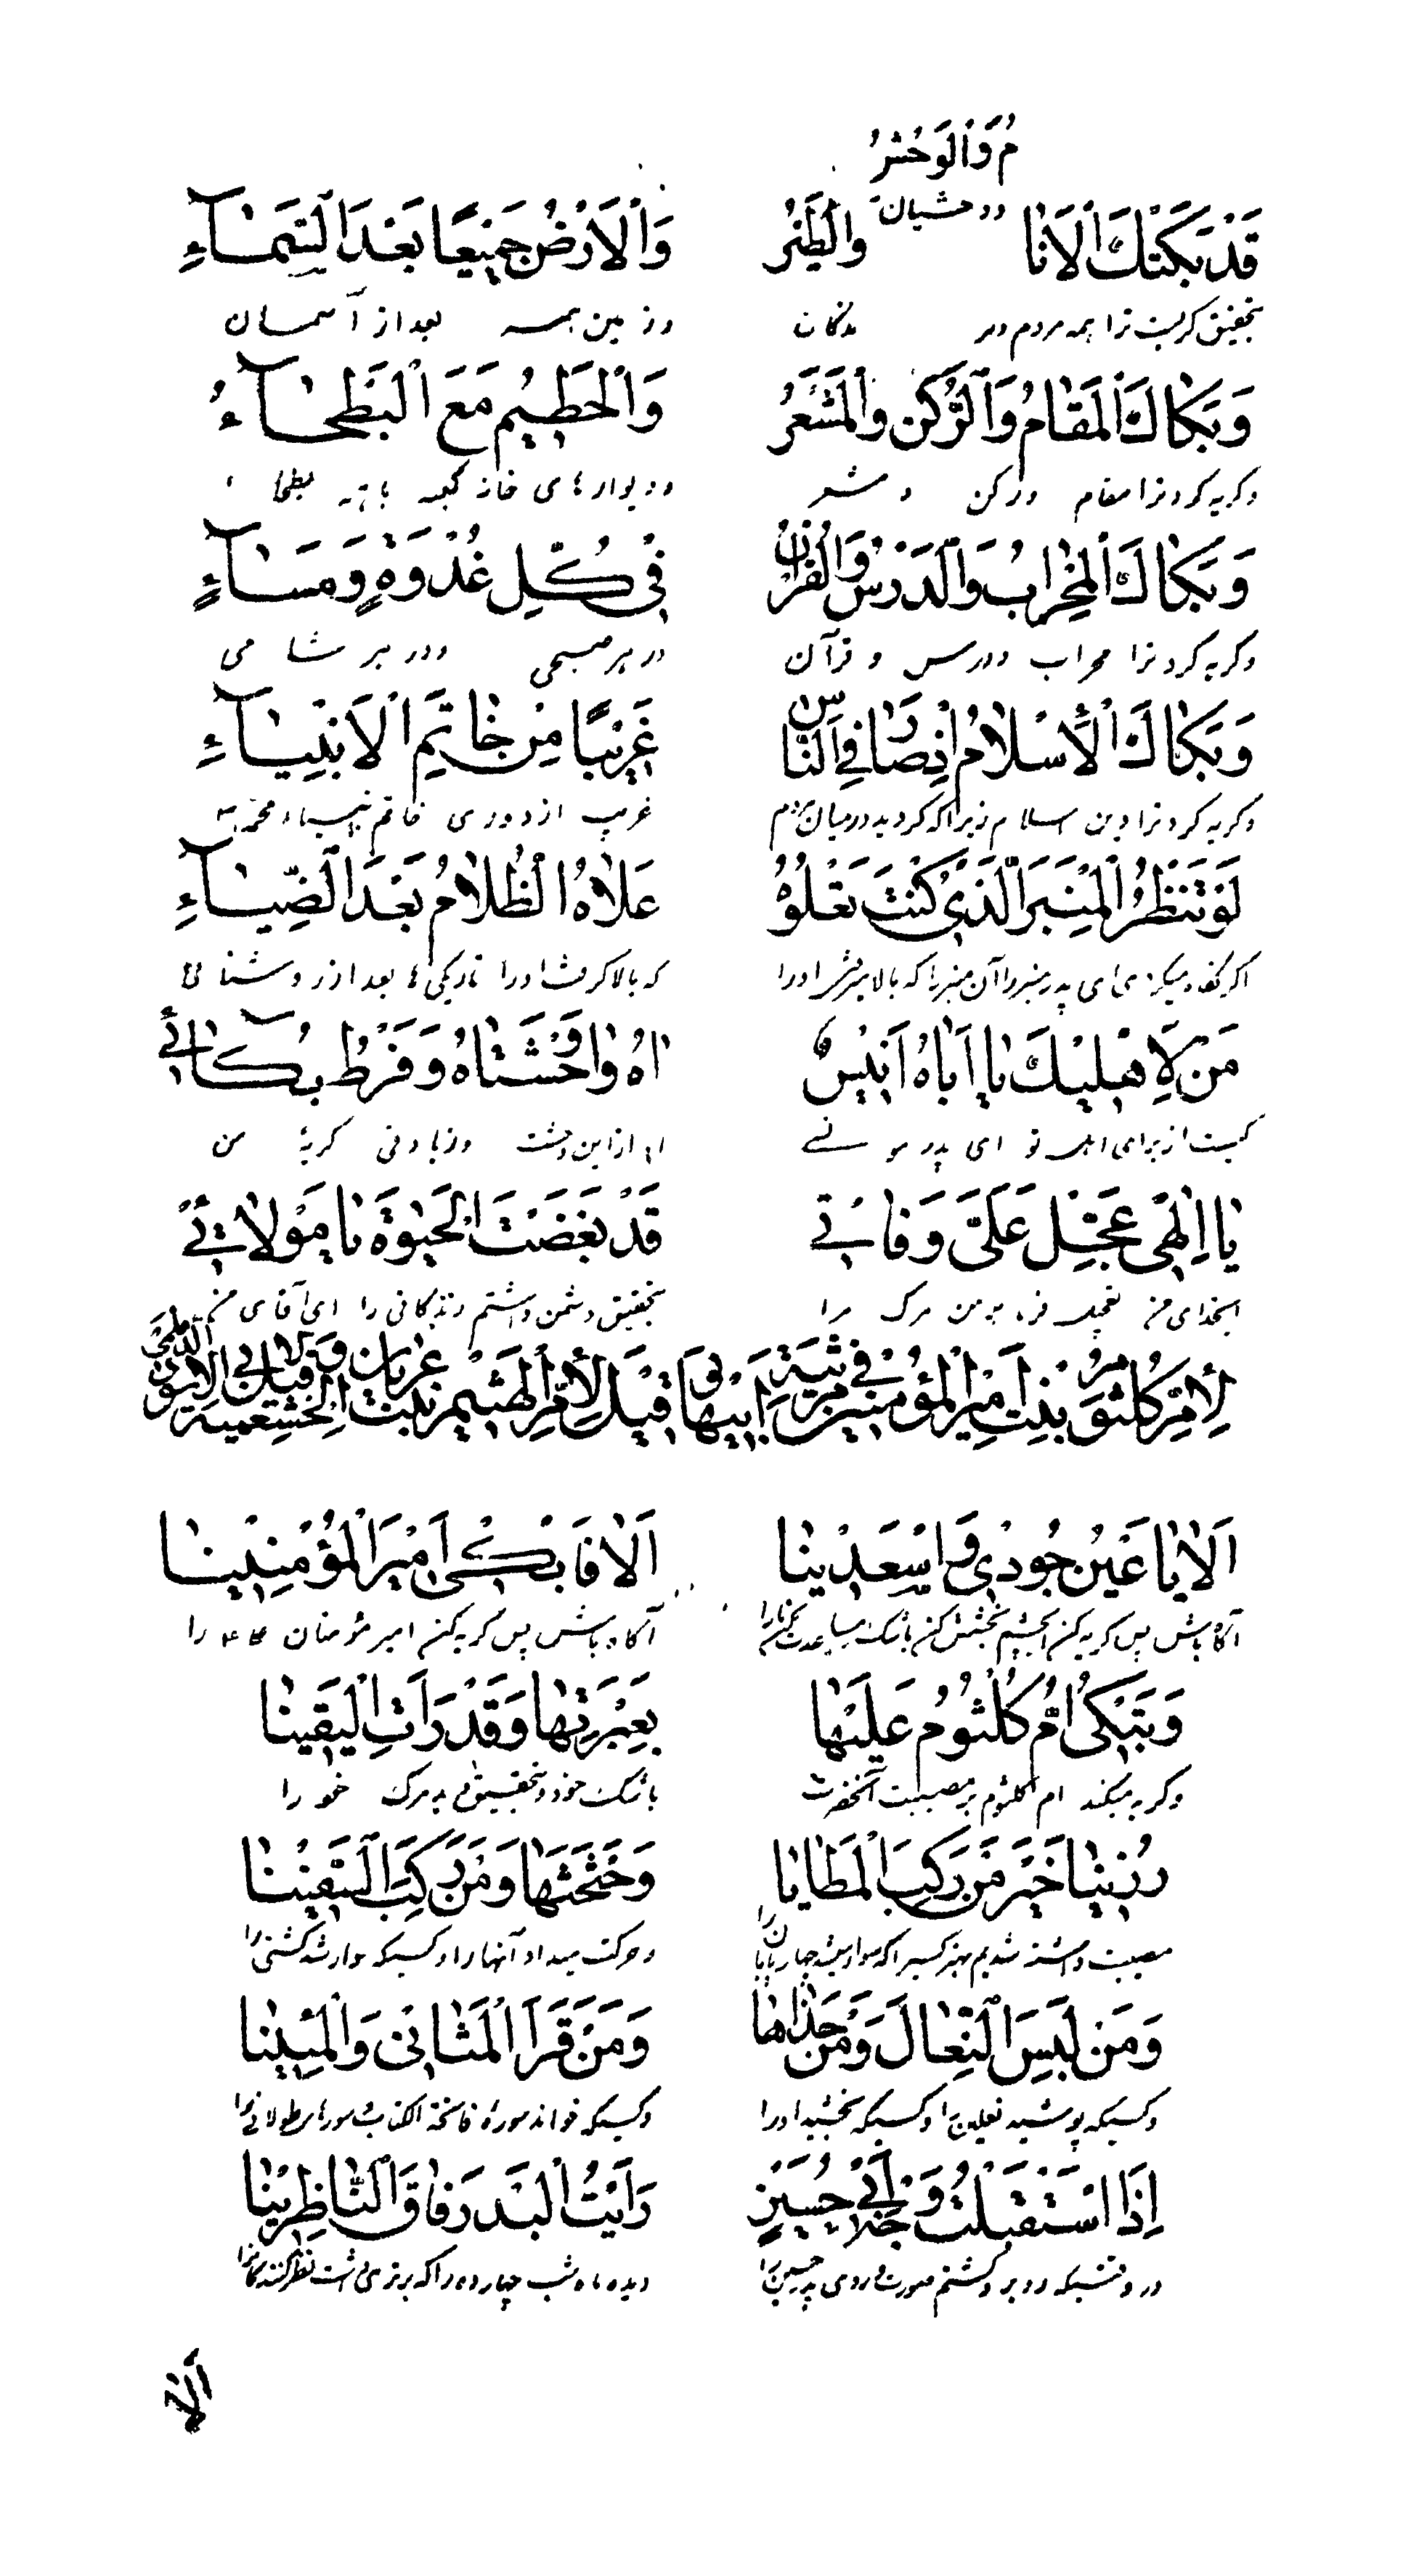 قَدْ بَكَتْكَ الْاَنٰامُ وَالْوَحْشُ وَالطَّيْرُ وَالْاَرْضُ جَمٖيعًا بَعْدَ السَّمٰاءِ
بتحقیق گریست ترا همه مردم و وحشیان و مرغان وزمین همه بعد از آسمان
وَبَكٰاكَ الْمَقٰامُ وَالرُّكْنُ وَالْمَشْعَرُ وَالْحَطٖيمُ مَعَ الْبَطْحٰاءِ
وگریه کرد ترا مقام ورکن و مشعر ودیوارهای خانه کعبه با بطحا
وَبَكٰاكَ الْمِحْرٰابُ وَالدَّرْسُ وَالْقُرْاٰنُ فٖي كُلِّ غُدْوَةٍ وَمَسٰاءٍ
وگریه کرد ترا محراب ودرس و قرآن در هر صبحی ودر هر شامی
وَبَكٰاكَ الْاِسْلٰامُ اِذْ صٰارَ فِي النّٰاسِ غَرٖيبًا مِنْ خٰاتَمِ الْاَنْبِيٰاءِ
وگریه کرد ترا دین اسلام زیرا که گردید در میان مردم غریب از دوری خاتم
لَوْ تَنْظُرُ الْمِنْبَرَ الَّذٖي كُنْتَ تَعْلُوهُ عَلٰاهُ الظَّلٰامُ بَعْدَ الضِّيٰاءِ
اگر نگاه میکردی ای پدر منبر را آن منبر را که بالا میرفتی او را که بالا گرفت او را تاریکی ها بعد از روشنائی
مَنْ لِاَهْلٖيكَ يٰا اَبٰاهُ اَنٖيسٌ اٰهُ وٰاوَحْشَتٰاهُ وَفَرْطُ بُكٰائٖي
کیست از برای اهل تو ای پدر مونسی آه از این وحشت وزیادتی گریهٔ من
يٰا اِلٰهٖي عَجِّلْ عَلَيَّ وَفٰاتٖي قَدْ بَغَضْتُ الْحَيٰوةَ يٰا مَوْلٰائٖي
ایخدای من تعجیل فرما بر من مرگ مرا بتحقیق دشمن داشتم زندگانی را ای آقای من
لِاُمِّ كُلْثُومٍ بِنْتِ اَمٖيرِ الْمُؤْمِنٖينَ فٖي مَرْثِيَةِ اَبٖيهٰا وَقٖيلَ لِاُمِّ الْهَيْثَمِ بِنْتِ عُرْيٰانٍ الْخَثْعَمِيَّةِ وَقٖيلَ لِاَبِي الْاَسْوَدِ الدُّئَلِيِّ
اَلٰا يٰا عَيْنُ جُودٖي وَاسْعَدٖينٰا اَلٰا فَابْكٖي اَمٖيرَ الْمُؤْمِنٖينٰا
آگاه باش پس گریه کن ایچشم بخشش کن باشک مساعدت کن ما را آگاه باش پس گریه کن امیر مؤمنان را
وَتَبْكٖي اُمُّ كُلْثُومٍ عَلَيْهٰا بِعَبْرَتِهٰا وَقَدْ رَاَتِ الْيَقٖينٰا
وگریه میکند ام کلثوم بر مصیبت آنحضرت باشک خود و بتحقیق دید مرگ خود را
رُزٖينٰا خَيْرَ مَنْ رَكِبَ الْمَطٰايٰا وَحَثْحَثَهٰا وَمَنْ رَكِبَ السَّفٖينٰا
مصیبت داشته شدیم بهتر کسیرا که سوار میشد چهارپایان را وحرکت میداد آنها را و کسیکه سوار شد کشتی را
وَمَنْ لَبِسَ النِّعٰالَ وَمَنْ حَذٰاهٰا وَمَنْ قَرَاَ الْمَثٰانٖيَ وَالْمِئٖينٰا
وکسیکه پوشید نعلین را وکسیکه بخشید او را وکسیکه خواند سورهٔ فاتحة الکتاب و سورهای طولانی را
اِذَا اسْتَقْبَلْتُ وَجْهَ اَبٖي حُسَيْنٍ رَاَيْتُ الْبَدْرَ فٰاقَ النّٰاظِرٖينٰا
در وقتیکه روبرو گشتم صورت و روی پدر حسین را دیده ماه شب چهارده را که برتری داشت نظر کنندگانرا
اَلٰا